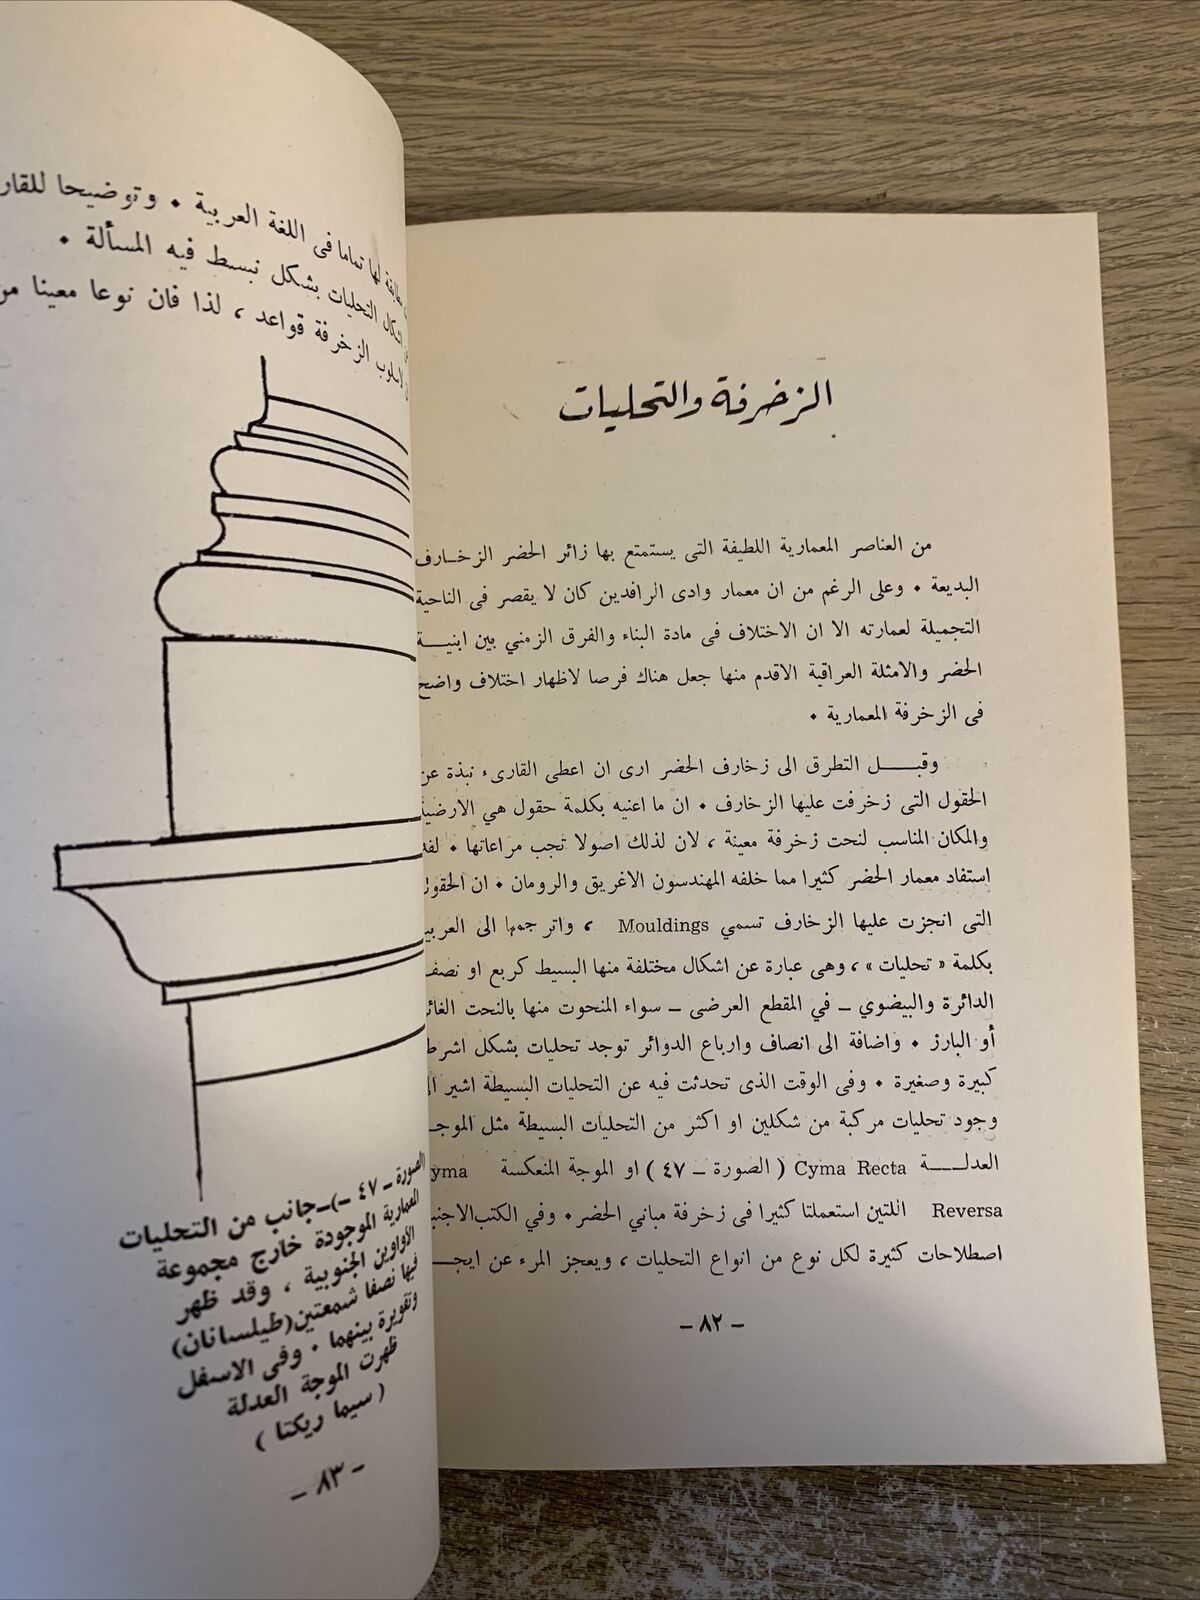 الزخرفة والتحليات
من العناصر المعمارية اللطيفة التى يستمتع بها زائر الحضر الزخــارف
البديعة • وعلى الرغم من ان معمار وادى الرافدين كان لا يقصر فى الناحية
التجميلة لعمارته الا ان الاختلاف فى مادة البناء والفرق الزمني بين ابنيـــة
الحضر والامثلة العراقية الاقدم منها جعل هناك فرصا لاظهار اختلاف واضح
فى الزخرفة المعمارية •
وقبـــل التطرق الى زخارف الحضر ارى ان اعطى القارىء نبذة عن
الحقول التى زخرفت عليها الزخارف • ان ما اعنيه بكلمة حقول هي الارضية
والمكان المناسب لنحت زخرفة معينة ، لان لذلك اصولا تجب مراعاتها •
استفاد معمار الحضر كثيرا مما خلفه المهندسون الاغريق والرومان • ان الحقول
التى انجزت عليها الزخارف تسمي Mouldings ، واترجمها الى
بكلمة « تحليات » ، وهى عبارة عن اشكال مختلفة منها البسيط كربع او نصف
الدائرة والبيضوي ــ في المقطع العرضى ــ سواء المنحوت منها بالنحت
أو البارز • واضافة الى انصاف وارباع الدوائر توجد تحليات بشكل
كبيرة وصغيرة • وفى الوقت الذى تحدثت فيه عن التحليات البسيطة اشير
وجود تحليات مركبة من شكلين او اكثر من التحليات البسيطة مثل
العدلـــــة Cyma Recta ( الصورة ــ ٤٧ ) او الموجة المنعكسة
Reversa اللتين استعملتا كثيرا فى زخرفة مباني الحضر • وفي الكتب
اصطلاحات كثيرة لكل نوع من انواع التحليات ، ويعجز المرء عن
ــ ٨٢ ــ
لها تماما فى اللغة العربية • وتوضيحا
التحليات بشكل نبسط فيه المسألة •
الزخرفة قواعد ، لذا فان نوعا معينا
الصورة ــ ٤٧ ــ)ــجانب من التحليات
المعمارية الموجودة خارج مجموعة
الأواوين الجنوبية ، وقد ظهر
فيها نصفا شمعتين(طيلسانان)
وتقويرة بينهما • وفى الاسفل
ظهرت الموجة العدلة
( سيما ريكتا )
ــ ٨٣ ــ